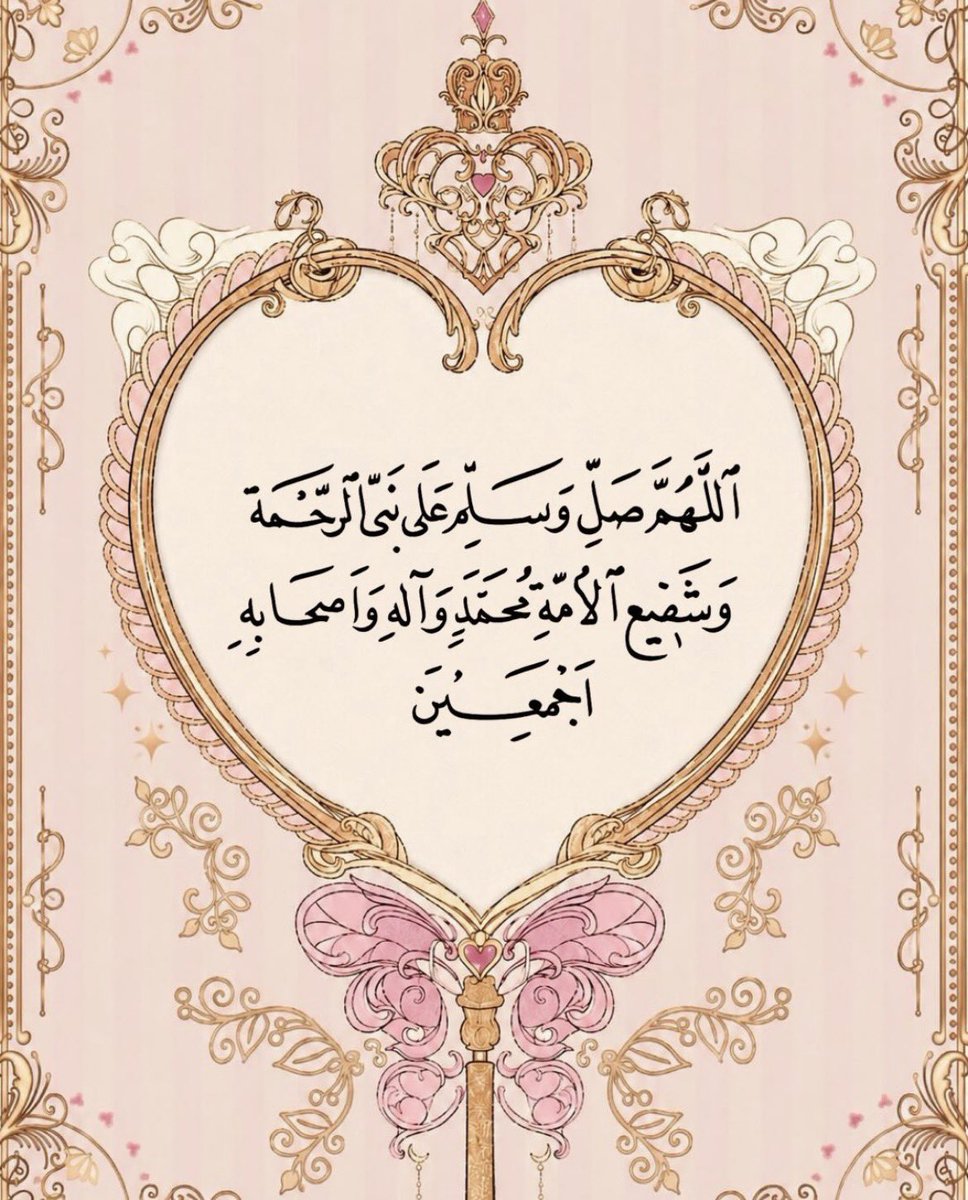 ٱللَّهُمَّ صَلِّ وَسَلِّمِ عَلَى نَبِىِّ ٱلرَّحْمَة
وَشَفِيعِ ٱلْأُمَّةِ مُحَمَّدٍ وَآلِهِ وَاَصحَابِهِ
اَجْمَعِيْنَ